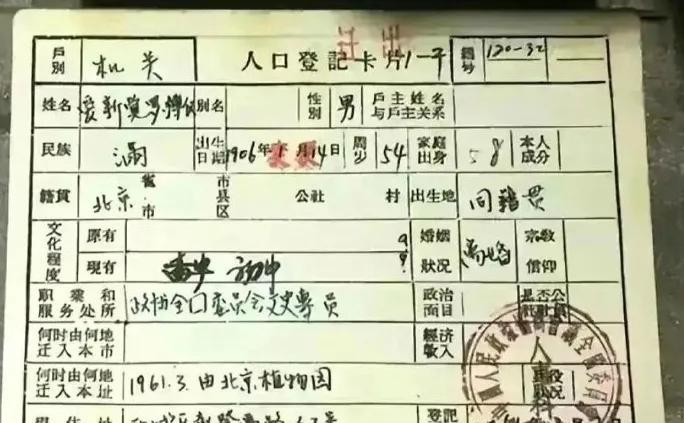 迁出
户别 机关 人口登記卡片1-子 編号 120-32
姓名 爱新觉罗溥仪 别名 性别 男 戶主姓名与戶主关系
民族 满 出生日期 1906年 月14日 周岁 54 家庭出身 本人成分
籍貫 北京 省市 市县区 公社 村 出生地 同籍贯
文化程度 原有 婚姻状况 离婚 宗教信仰
现有 初中
职業和服务处所 政协全国委员会文史專员 政治面目 是否公社社員
何时由何地迁入本市 经济收入
何时由何地迁入本址 1961.3.由北京植物园
現住址 登記